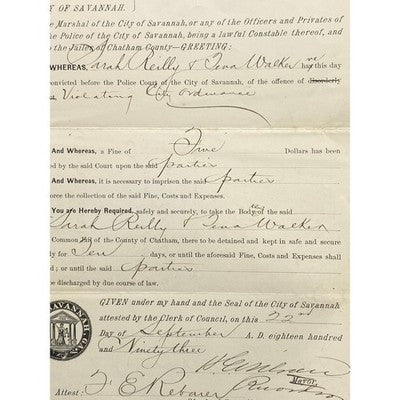 OF SAVANNAH.
Marshal of the City of Savannah, or any of the Officers and Privates of
the Police of the City of Savannah, being a lawful Constable thereof, and
to the Jailer of Chatham County—GREETING:
WHEREAS, Sarah Reilly & Tena Walker this day
convicted before the Police Court of the City of Savannah, of the offence of disorderly
Violating City ordinance
And Whereas, a Fine of Five Dollars has been
ed by the said Court upon the said parties
And Whereas, it is necessary to imprison the said parties
force the collection of the said Fine, Costs and Expenses.
You are Hereby Required, safely and securely, to take the Bodies of the said
Sarah Reilly & Tena Walker
Common of the County of Chatham, there to be detained and kept in safe and secure
dy for Ten days, or until the aforesaid Fine, Costs and Expenses shall
d; or until the said parties
be discharged by due course of law.
GIVEN under my hand and the Seal of the City of Savannah
attested by the Clerk of Council, on this 22nd
Day of September A. D. eighteen hundred
and Ninety three
SAVANNAH, GA.
Mayor.
Attest: F E Rebarer